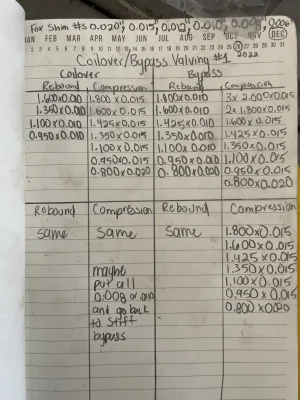 For Shim #s 0.020", 0.015", 0.012", 0.010", 0.008", 0.006
JAN FEB MAR APR MAY JUN JUL AUG SEP OCT NOV DEC
1 2 3 4 5 6 7 8 9 10 11 12 13 14 15 16 17 18 19 20 21 22 23 24 25 26 27 28 29 30 31
Coilover/Bypass Valving #1 2022
Coilover Bypass
Rebound Compression Rebound Compression
1.600x0.010 1.800x0.015 1.800x0.010 3x 2.000x0.015
1.350x0.010 1.600x0.015 1.600x0.010 2x 1.800x0.015
1.100x0.010 1.425x0.015 1.425x0.010 1.600x0.015
0.950x0.010 1.350x0.015 1.350x0.010 1.425x0.015
1.100x0.015 1.100x0.010 1.350x0.015
0.950x0.015 0.950x0.010 1.100x0.015
0.800x0.020 0.800x0.020 0.950x0.015
0.800x0.020
Rebound Compression Rebound Compression
same same same 1.800x0.015
1.600x0.015
1.425x0.015
maybe 1.350x0.015
put all 1.100x0.015
0.008 or .010 0.950x0.015
and go back 0.800x0.020
to stiff
bypass